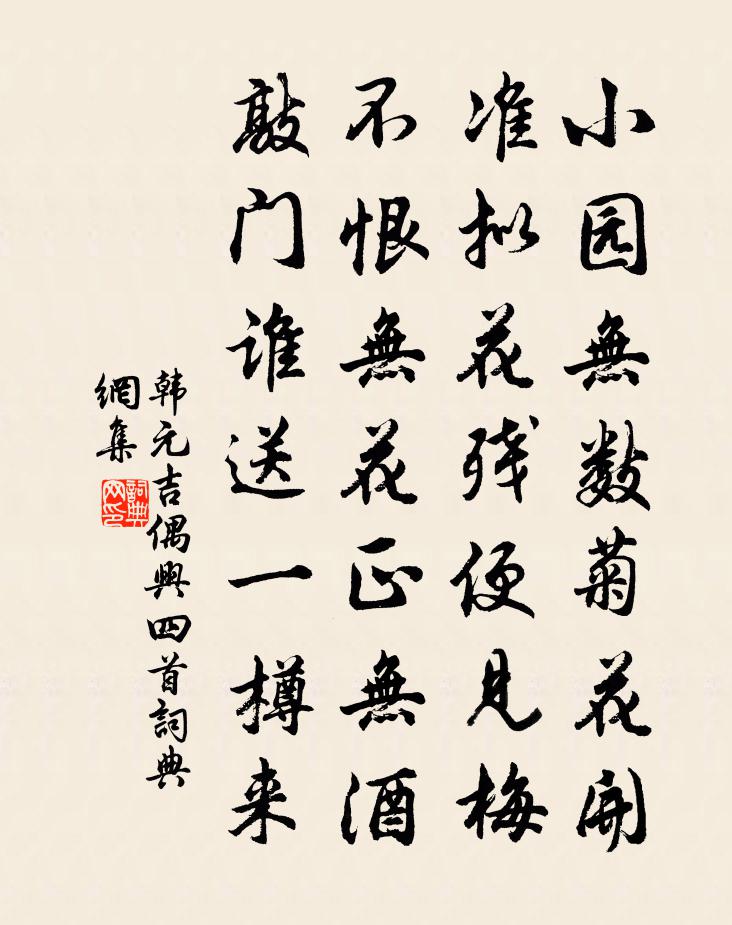 小园無数菊花開
准拟花残便見梅
不恨無花正無酒
敲门谁送一樽来
韩元吉偶興四首詞典
網集
詞典
网印